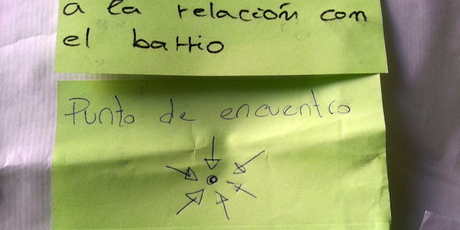 a la relación con
el barrio
Punto de encuentro